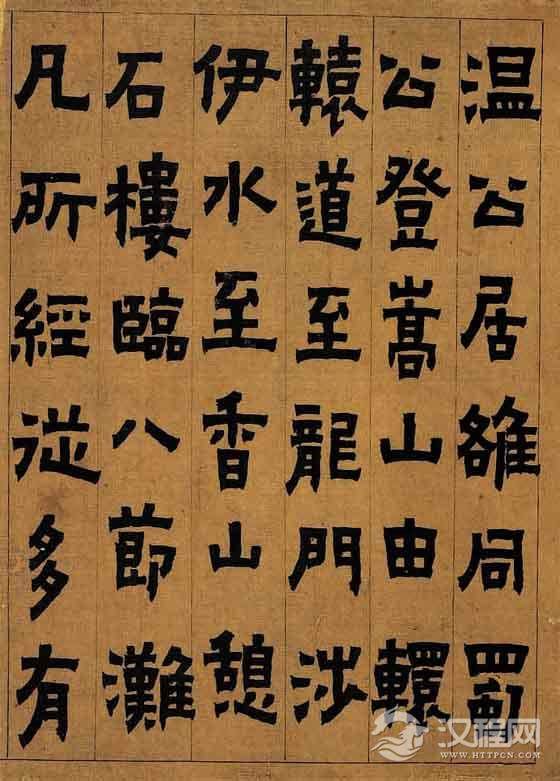 温公居雒同
公登嵩山由轘
轅道至龍門涉
伊水至香山憩
石樓臨八莭灘
凡所經從多有
汉程网
WWW.HTTPCN.COM